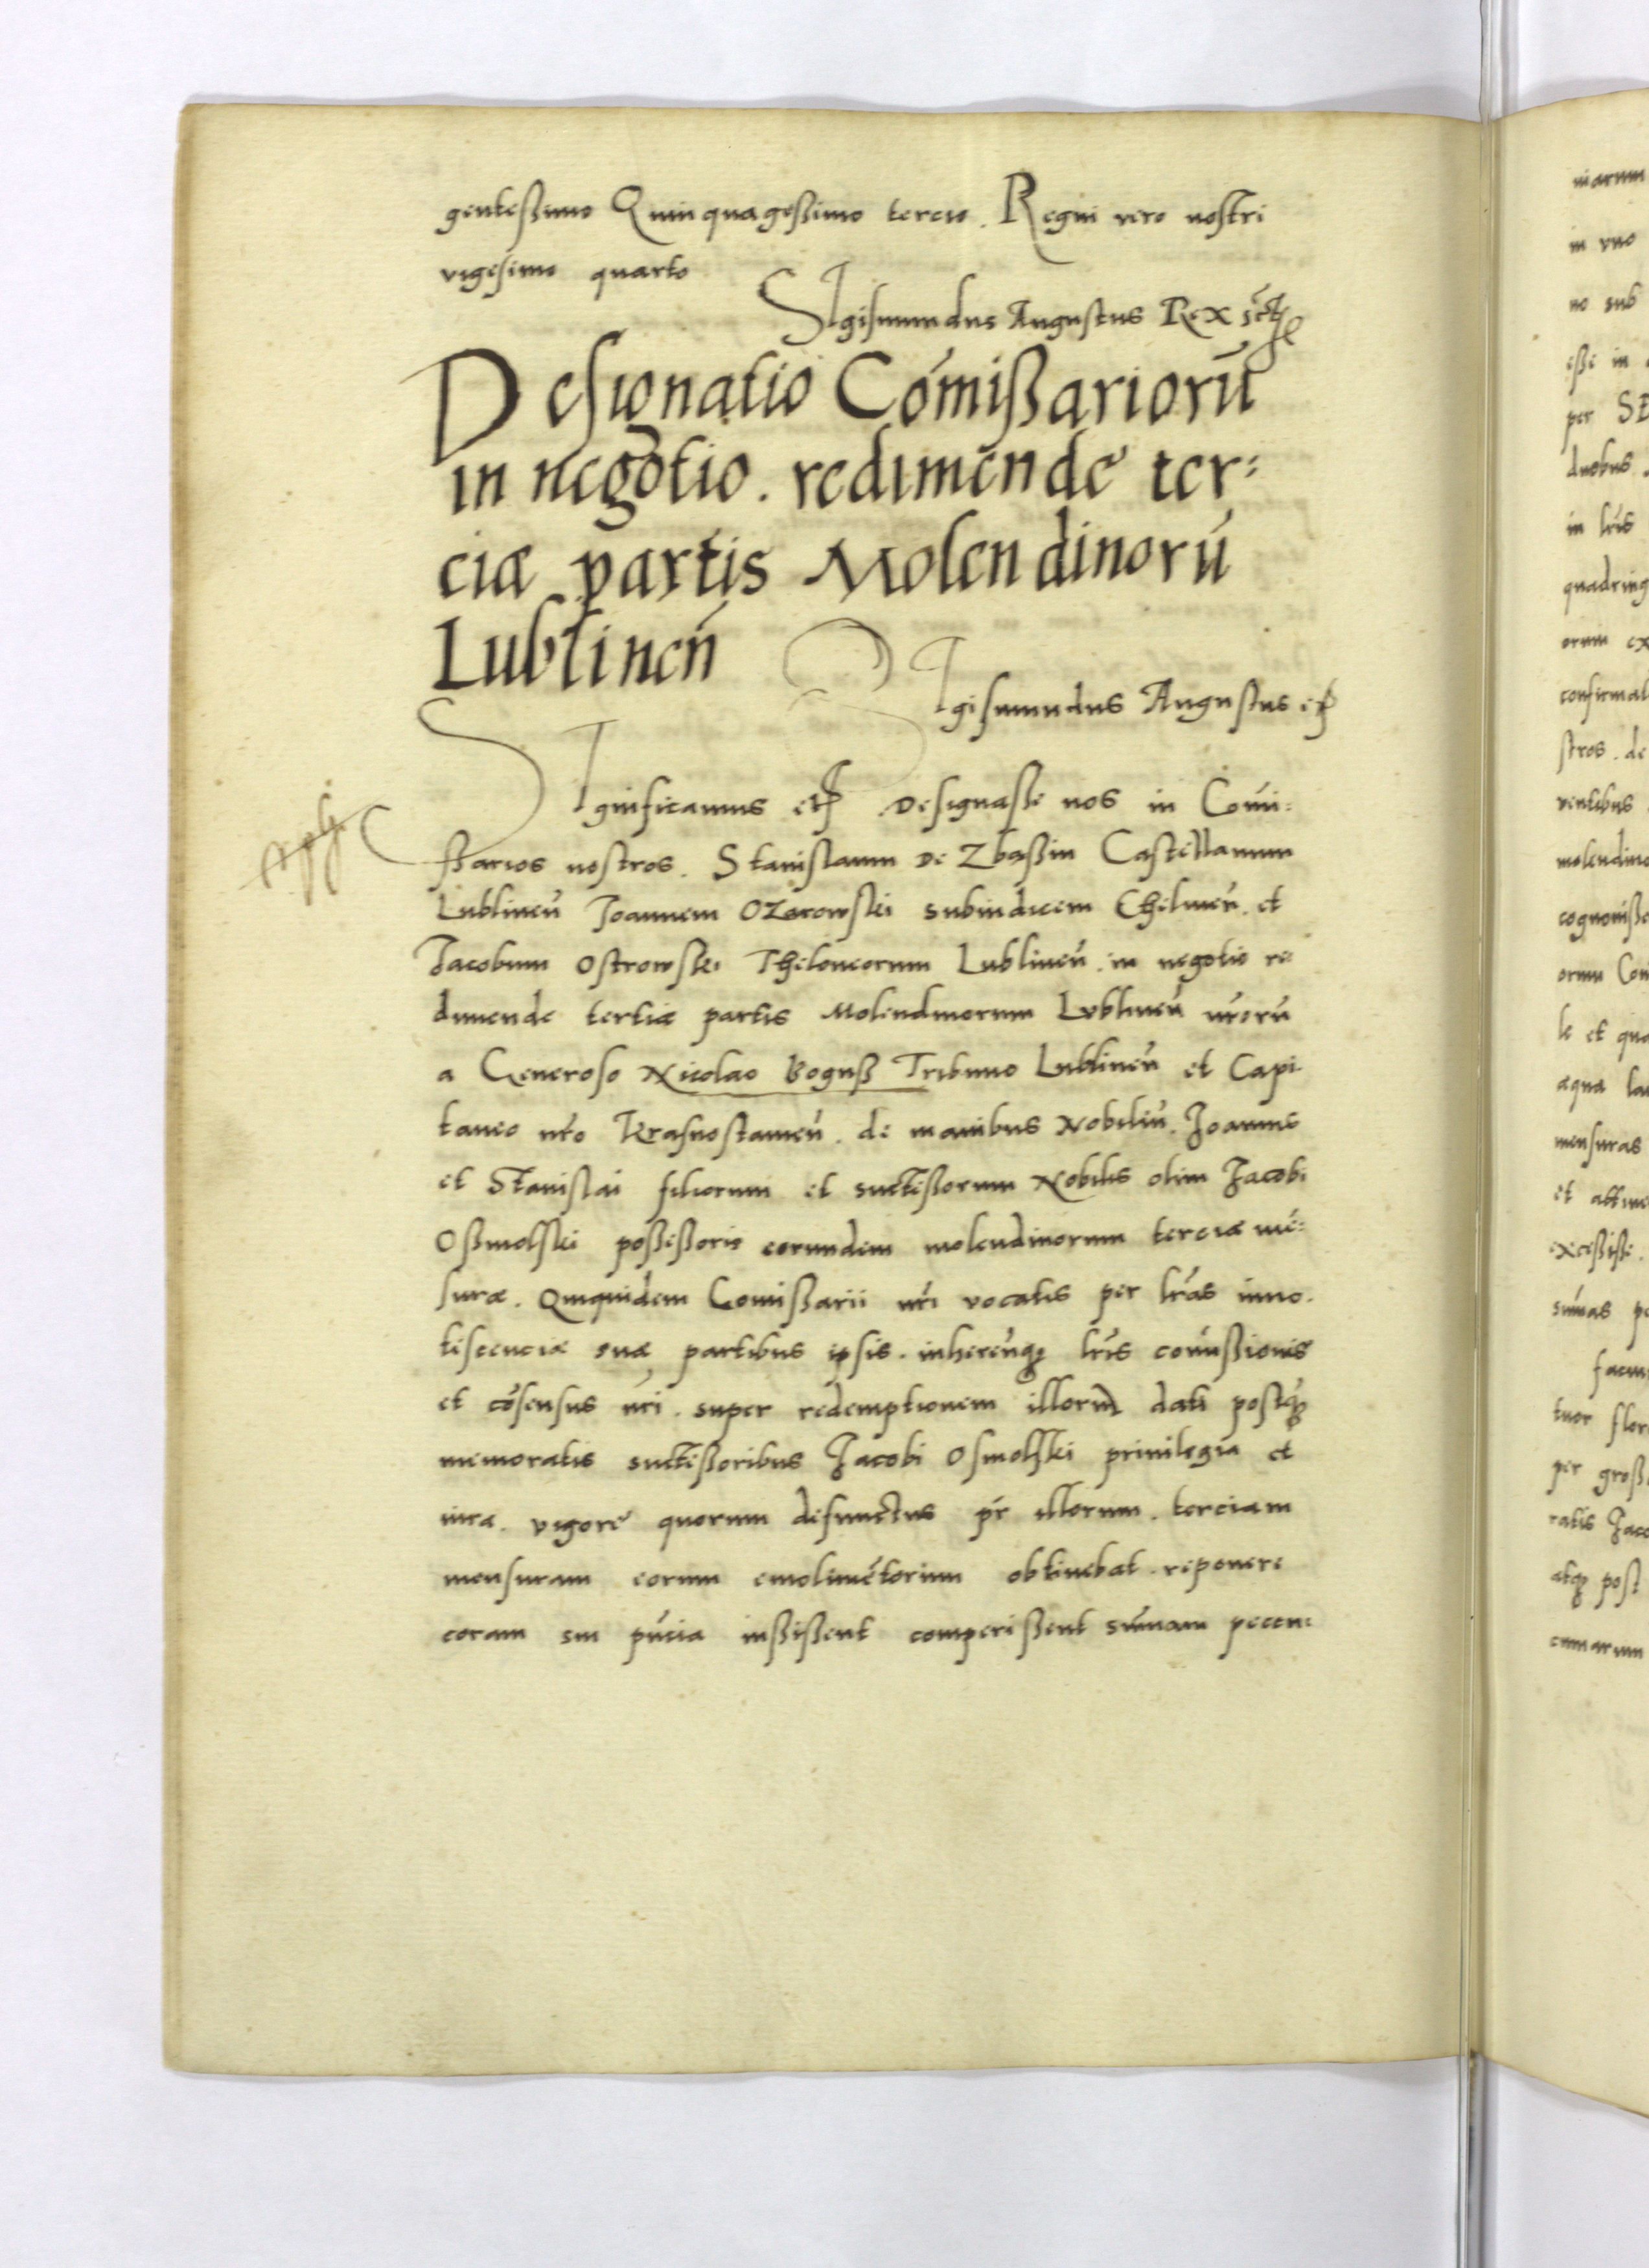 genteßimo Quinquageßimo tercio. Regni vero nostri
vigesimo quarto
Sigismundus Augustus Rex
Designatio Cōmißariorū
in negotio. redimende ter:
ciæ partis Molendinorū
Lublineñ
Sigismundus Augustus etc
Significamus etc Designaße nos in Comi:
ßarios nostros. Stanislaum de Zbaßin Castellanum
Lublineñ Joannem Ozarowski subiudicem Chelmeñ. et
Jacobum Ostrowski Theloneorum Lublineñ. in negotio re
dimende tertiæ partis Molendinorum Lublineñ nrorū
a Generoso Nicolao Boguß Tribuno Lublineñ et Capi
taneo nro Krasnostameñ. de manibus Nobiliū. Joannis
et Stanislai filiorum et succeßorum Nobilis olim Jacobi
Oßmolski poßeßoris eorundem molendinorum terciæ mē:
suræ. Quiquidem Comißarii nri vocatis per lras inno.
tiscenciæ suæ partibus ipsis. inhereñqꝫ lris comißionis
et cōsensus nri. super redemptionem illorum dati postqꝫ
memoratis succeßoribus Jacobi Osmolski priuilegia et
iura. vigore quorum defunctus pr illorum. terciam
mensuram eorum emolimētorum obtinebat. reponere
coram sui pñcia iußißent comperißent sūmam pecuni
in vno
no sub
eße in
per
duobus
in lris
quadring
orum ex
stros. de
ventibus
mensuras
per
cuniarum